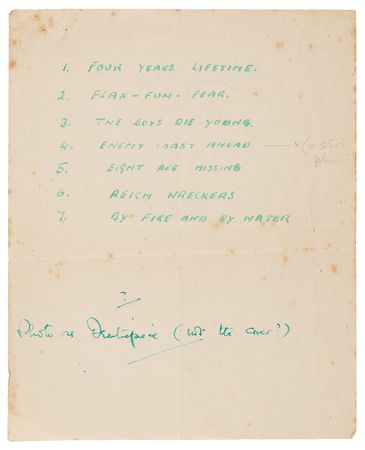 1. FOUR YEARS LIFETIME.
2. FLAK - FUN - FEAR.
3. THE BOYS DIE YOUNG.
4. ENEMY COAST AHEAD — x (a stock phrase
5. EIGHT ARE MISSING
6. REICH WRECKERS
7. BY FIRE AND BY WATER
?
Photo as Frontispiece (not the cover?)